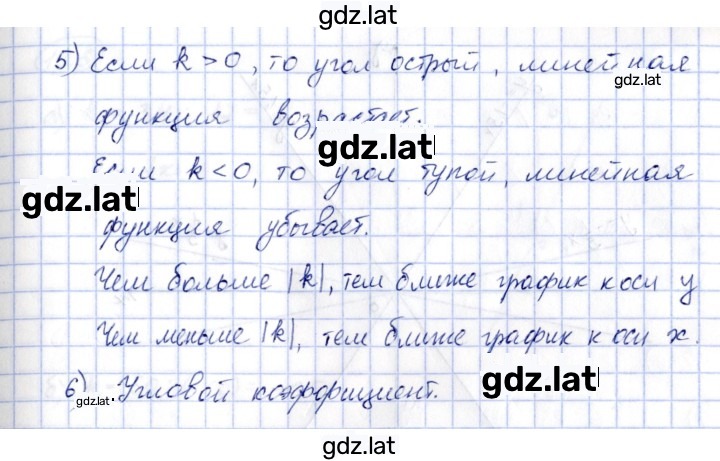 gdz.lat
5) Если k > 0, то угол острый, линейная
gdz.lat
функция возрастает.
gdz.lat
Если k < 0, то угол тупой, линейная
gdz.lat
функция убывает.
Чем больше |k|, тем ближе график к оси y
Чем меньше |k|, тем ближе график к оси x.
6) Угловой коэффициент.
gdz.lat
gdz.lat
gdz.lat